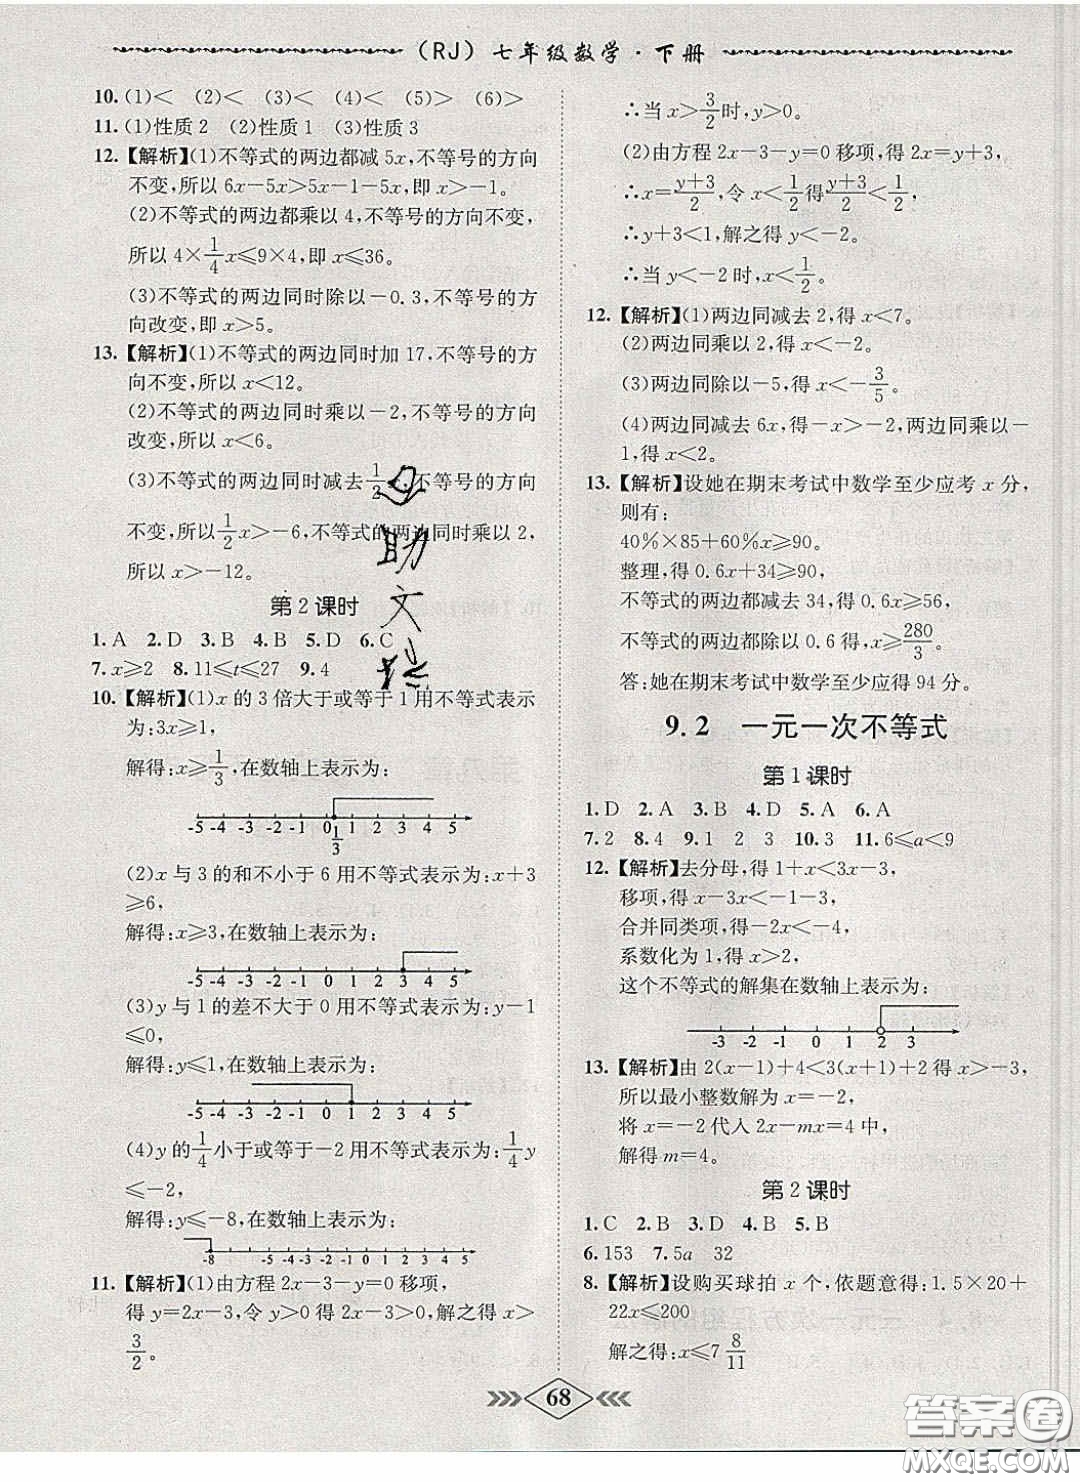 (RJ) 七年级数学·下册
10.(1)< (2)< (3)< (4)< (5)> (6)>
11.(1)性质2 (2)性质1 (3)性质3
12.【解析】(1)不等式的两边都减5x,不等号的方向
不变,所以6x-5x>5x-1-5x,即x>-1。
(2)不等式的两边都乘以4,不等号的方向不变,
所以4×1/4x≤9×4,即x≤36。
(3)不等式的两边同时除以-0.3,不等号的方
向改变,即x>5。
13.【解析】(1)不等式的两边同时加17,不等号的方
向不变,所以x<12。
(2)不等式的两边同时乘以-2,不等号的方向
改变,所以x<6。
(3)不等式的两边同时减去1/2x,不等号的方向
不变,所以1/2x>-6,不等式的两边同时乘以2,
所以x>-12。
第2课时
1.A 2.D 3.B 4.B 5.D 6.C
7.x≥2 8.11≤t≤27 9.4
10.【解析】(1)x的3倍大于或等于1用不等式表示
为:3x≥1,
解得:x≥1/3,在数轴上表示为:
-5 -4 -3 -2 -1 0 1/3 1 2 3 4 5
(2)x与3的和不小于6用不等式表示为:x+3
≥6,
解得:x≥3,在数轴上表示为:
-5 -4 -3 -2 -1 0 1 2 3 4 5
(3)y与1的差不大于0用不等式表示为:y-1
≤0,
解得:y≤1,在数轴上表示为:
-5 -4 -3 -2 -1 0 1 2 3 4 5
(4)y的1/4小于或等于-2用不等式表示为:1/4y
≤-2,
解得:y≤-8,在数轴上表示为:
-8 -5 -4 -3 -2 -1 0 1 2 3 4 5
11.【解析】(1)由方程2x-3-y=0移项,
得y=2x-3,令y>0得2x-3>0,解之得x>
3/2。
∴当x>3/2时,y>0。
(2)由方程2x-3-y=0移项,得2x=y+3,
∴x=y+3/2,令x<1/2得y+3/2<1/2,
∴y+3<1,解之得y<-2。
∴当y<-2时,x<1/2。
12.【解析】(1)两边同减去2,得x<7。
(2)两边同乘以2,得x<-2。
(3)两边同除以-5,得x<-3/5。
(4)两边同减去6x,得-x>-2,两边同乘以-
1,得x<2。
13.【解析】设她在期末考试中数学至少应考x分,
则有:
40%×85+60%x≥90。
整理,得0.6x+34≥90,
不等式的两边都减去34,得0.6x≥56,
不等式的两边都除以0.6得,x≥280/3。
答:她在期末考试中数学至少应得94分。
9.2 一元一次不等式
第1课时
1.D 2.A 3.B 4.D 5.A 6.A
7.2 8.4 9.1 2 3 10.3 11.6≤a<9
12.【解析】去分母,得1+x<3x-3,
移项,得x-3x<-1-3,
合并同类项,得-2x<-4,
系数化为1,得x>2,
这个不等式的解集在数轴上表示为:
-3 -2 -1 0 1 2 3
13.【解析】由2(x-1)+4<3(x+1)+2得x>-3,
所以最小整数解为x=-2,
将x=-2代入2x-mx=4中,
解得m=4。
第2课时
1.C 2.B 3.D 4.B 5.B
6.153 7.5a 32
8.【解析】设购买球拍x个,依题意得:1.5×20+
22x≤200
解之得:x≤7 8/11
68
答案圈
MXQE.COM